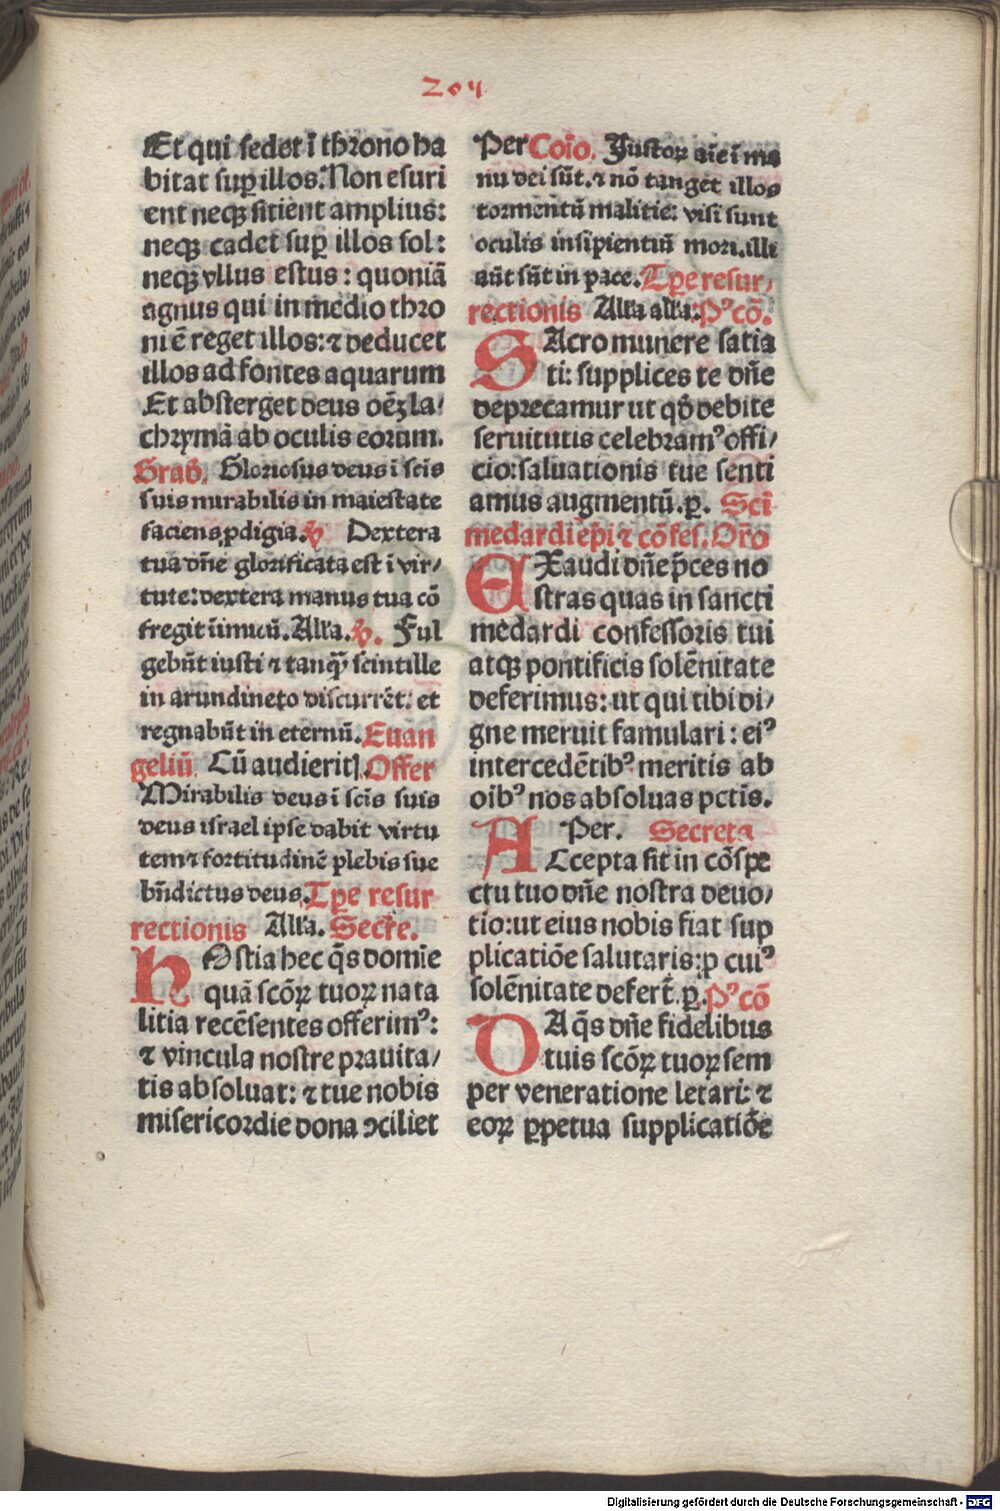 204
Et qui sedet ī throno ha
bitat suꝑ illos. Non esuri
ent neqꝫ sitient amplius:
neqꝫ cadet suꝑ illos sol:
neqꝫ vllus estus: quoniā
agnus qui in medio thro
ni ē reget illos: ⁊ deducet
illos ad fontes aquarum
Et absterget deus oēꝫ la/
chrymā ab oculis eorum.
Grad. Gloriosus deus ī scīs
suis mirabilis in maiestate
faciens ꝓdigia. ℣ Dextera
tua dn̄e glorificata est ī vir/
tute: dextera manus tua cō
fregit īimicū. All'a. ℣. Ful
gebūt iusti ⁊ tanqꝫ̄ scintille
in arundineto discurrēt: et
regnabūt in eternū. Euan
geliū. Cū audieritꝭ. Offer
Mirabilis deus ī scīs suis
deus israel ipse dabit virtu
tem ⁊ fortitudinē plebis sue
bn̄dictus deus. Tꝑe resur
rectionis All'a. Secre.
HOstia hec q̄s domīe
quā scōꝝ tuoꝝ nata
litia recēsentes offerimꝰ:
⁊ vincula nostre prauita/
tis absoluat: ⁊ tue nobis
misericordie dona ↄciliet
Per Cōio. Iustoꝝ aīe ī ma
nu dei sūt. ⁊ nō tanget illos
tormentū malitie: visi sunt
oculis insipientiū mori. illi
aūt sūt in pace. Tꝑe resur/
rectionis All'a all'a. Pꝰcō.
SAcro munere satia
ti: supplices te dn̄e
deprecamur ut qd̄ debite
seruitutis celebramꝰ offi/
cio: saluationis tue senti
amus augmentū. ꝑ. Scī
medardi ep̄i ⁊ cōfes. Orō
EXaudi dn̄e p̄ces no
stras quas in sancti
medardi confessoris tui
atqꝫ pontificis solēnitate
deferimus: ut qui tibi di/
gne meruit famulari: eiꝰ
intercedētibꝰ meritis ab
oībꝰ nos absoluas pctīs.
Per. Secreta
ACcepta sit in cōspe
ctu tuo dn̄e nostra deuo/
tio: ut eius nobis fiat sup
plicatiōe salutaris: ꝓ cuiꝰ
solēnitate defert̄. ꝑ. Pꝰcō
DA q̄s dn̄e fidelibus
tuis scōꝝ tuoꝝ sem
per veneratione letari: ⁊
eoꝝ ꝑpetua supplicatiōe
Digitalisierung gefördert durch die Deutsche Forschungsgemeinschaft - DFG